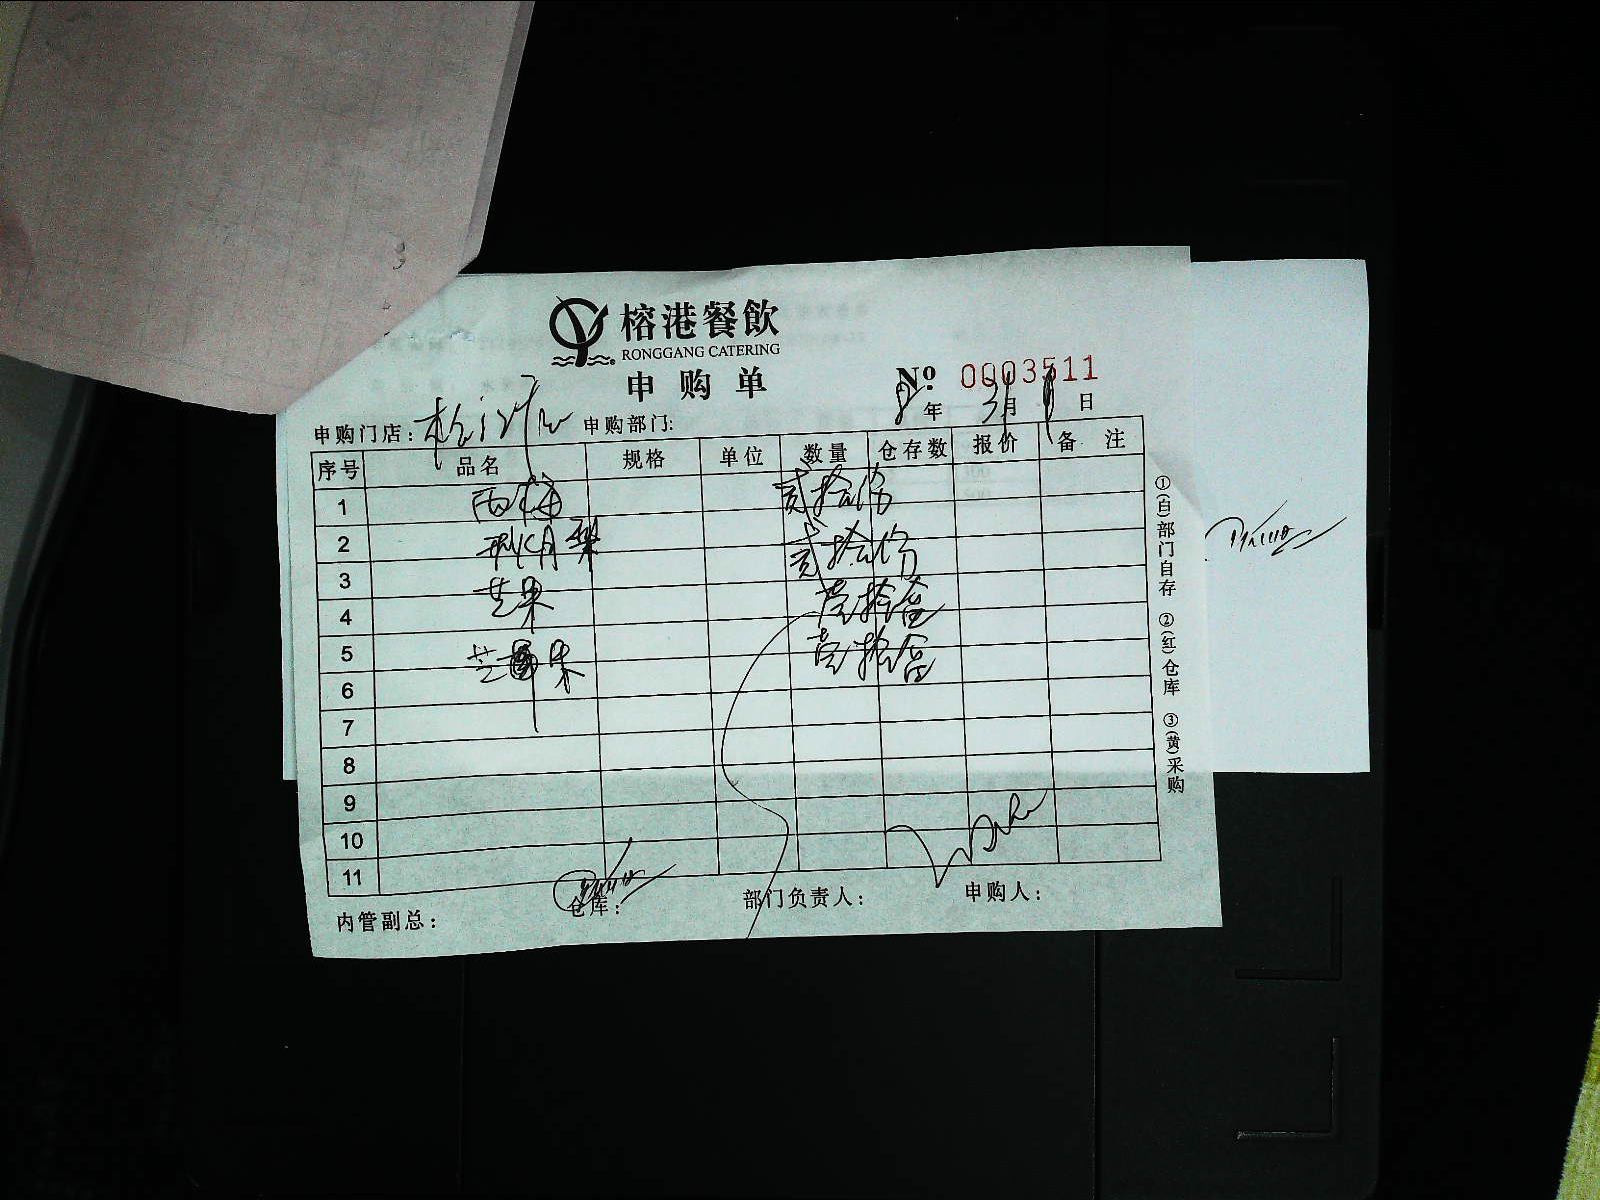 榕港餐飲
RONGGANG CATERING
申购单
№ 0003511
8年 3月 日
申购门店： 申购部门:
序号 品名 规格 单位 数量 仓存数 报价 备 注
1 西梅 贰拾份
2 梨 贰拾份
3 芒果 壹拾盒
4
5 芒果 壹拾盒
6
7
8
9
10
11
内管副总： 仓库： 部门负责人： 申购人：
①(白)部门自存 ②(红)仓库 ③(黄)采购